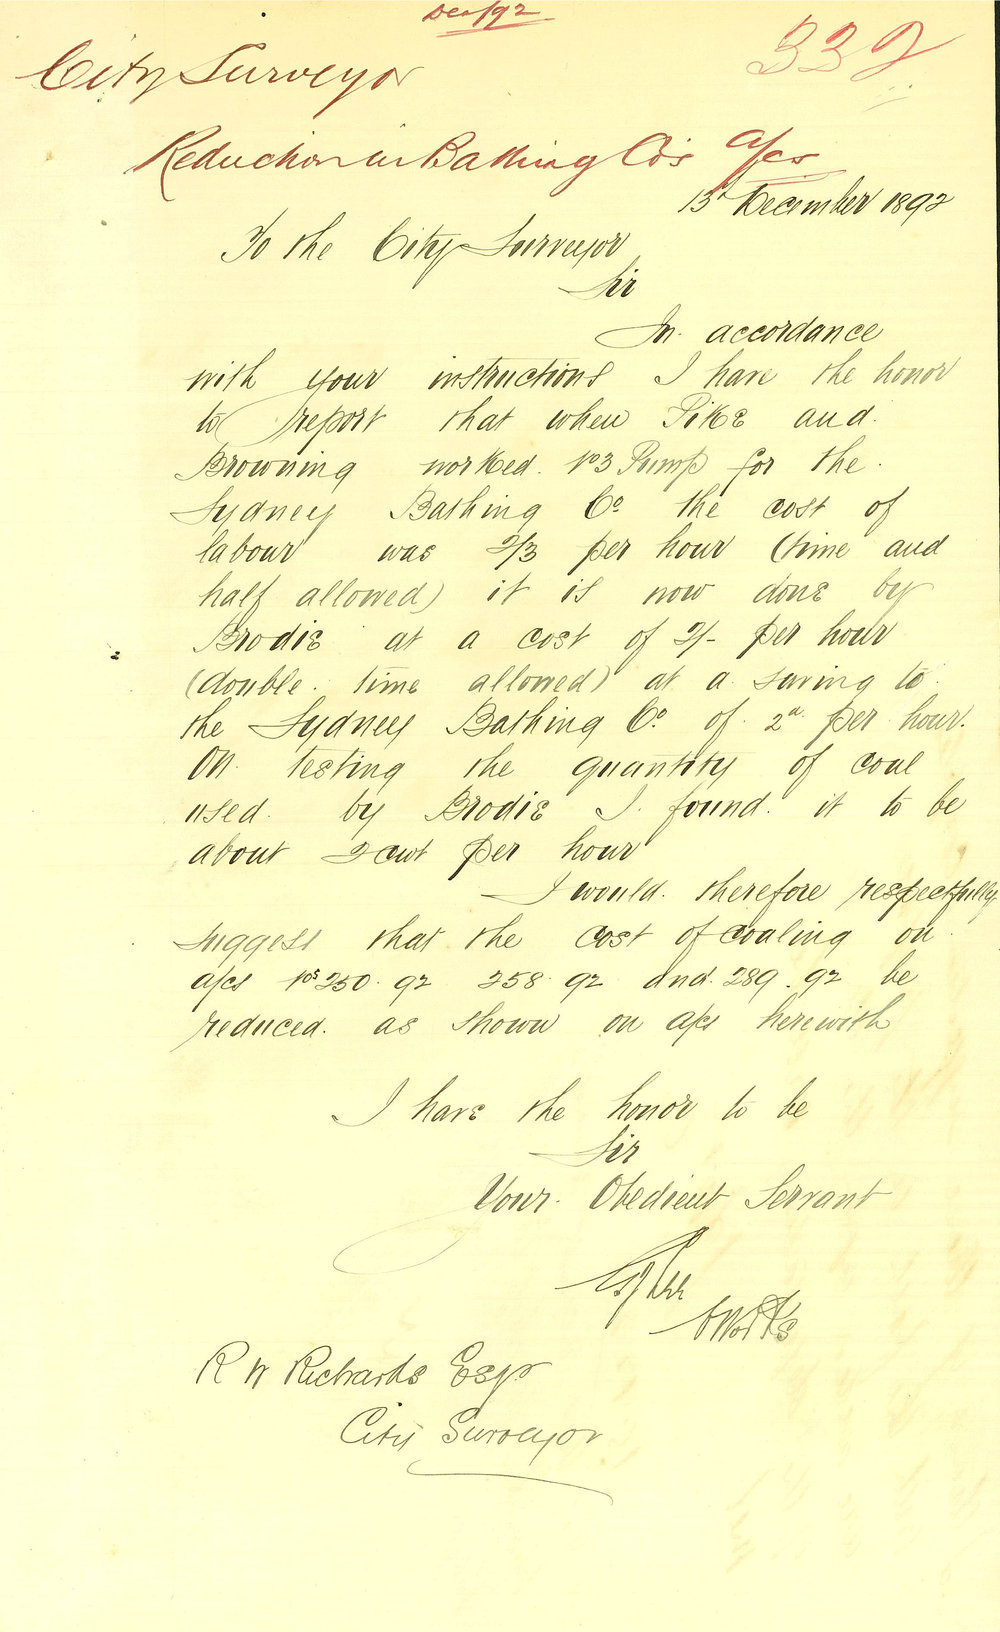 Dec/92
332
City Surveyor
Reduction in Bathing Co's a/cs
13th December 1892
To the City Surveyor
Sir
In accordance
with your instructions I have the honor
to report that when Pike and
Browning worked No 3 Pump for the
Sydney Bathing Co the cost of
labour was 2/3 per hour (time and
half allowed) it is now done by
Brodie at a cost of 2/- per hour
(double time allowed) at a saving to
the Sydney Bathing Co of 2d per hour.
On testing the quantity of coal
used by Brodie I found it to be
about 2 cwt per hour
I would therefore respectfully
suggest that the cost of coaling on
a/cs Nos 250.92 258.92 and 289.92 be
reduced as shown on a/cs herewith
I have the honor to be
Sir
Your Obedient Servant
R W Richards Esqr
City Surveyor